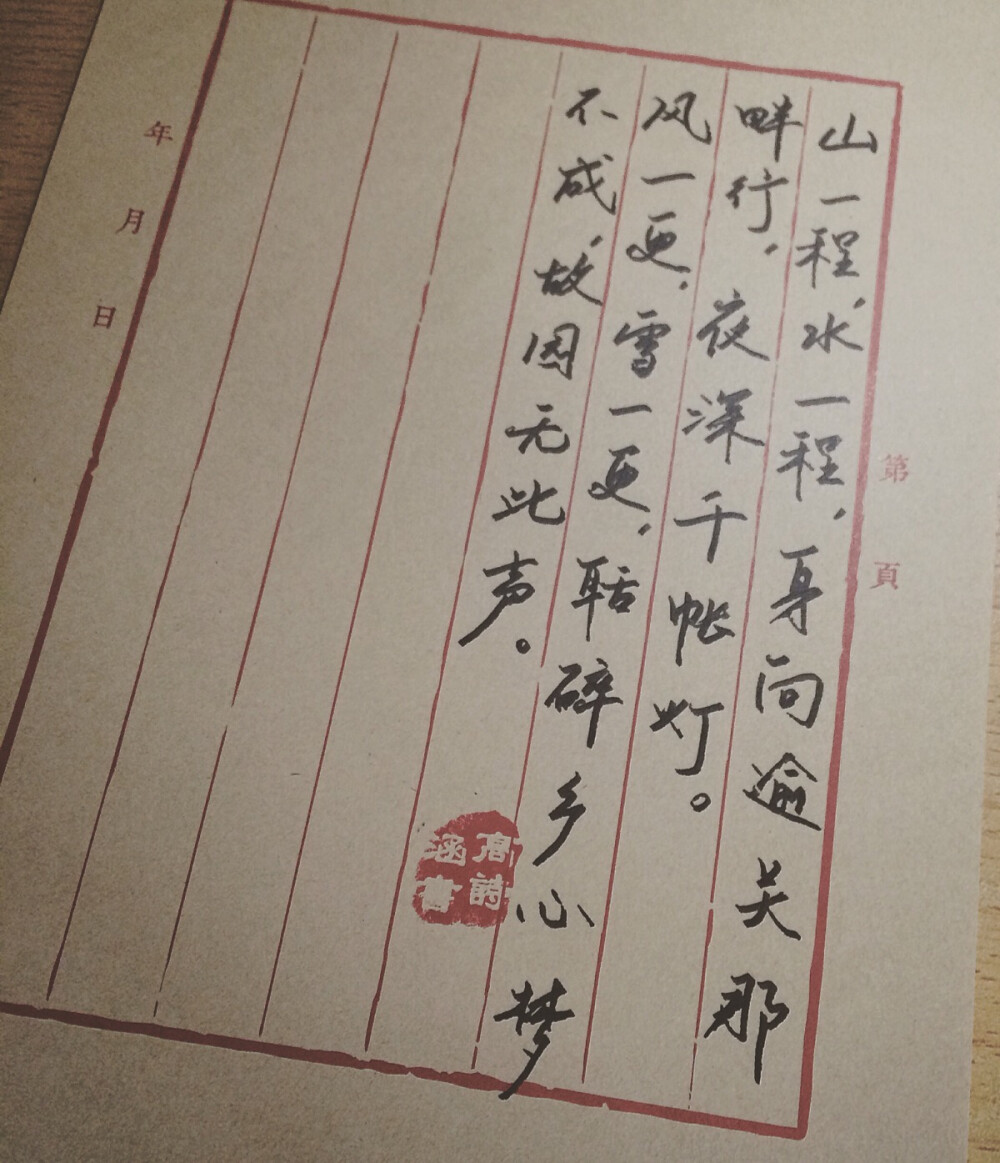 山一程，水一程，身向逾关那
畔行，夜深千帐灯。
风一更，雪一更，聒碎乡心梦
不成，故园无此声。
第　頁
年　月　日
高詩
涵書